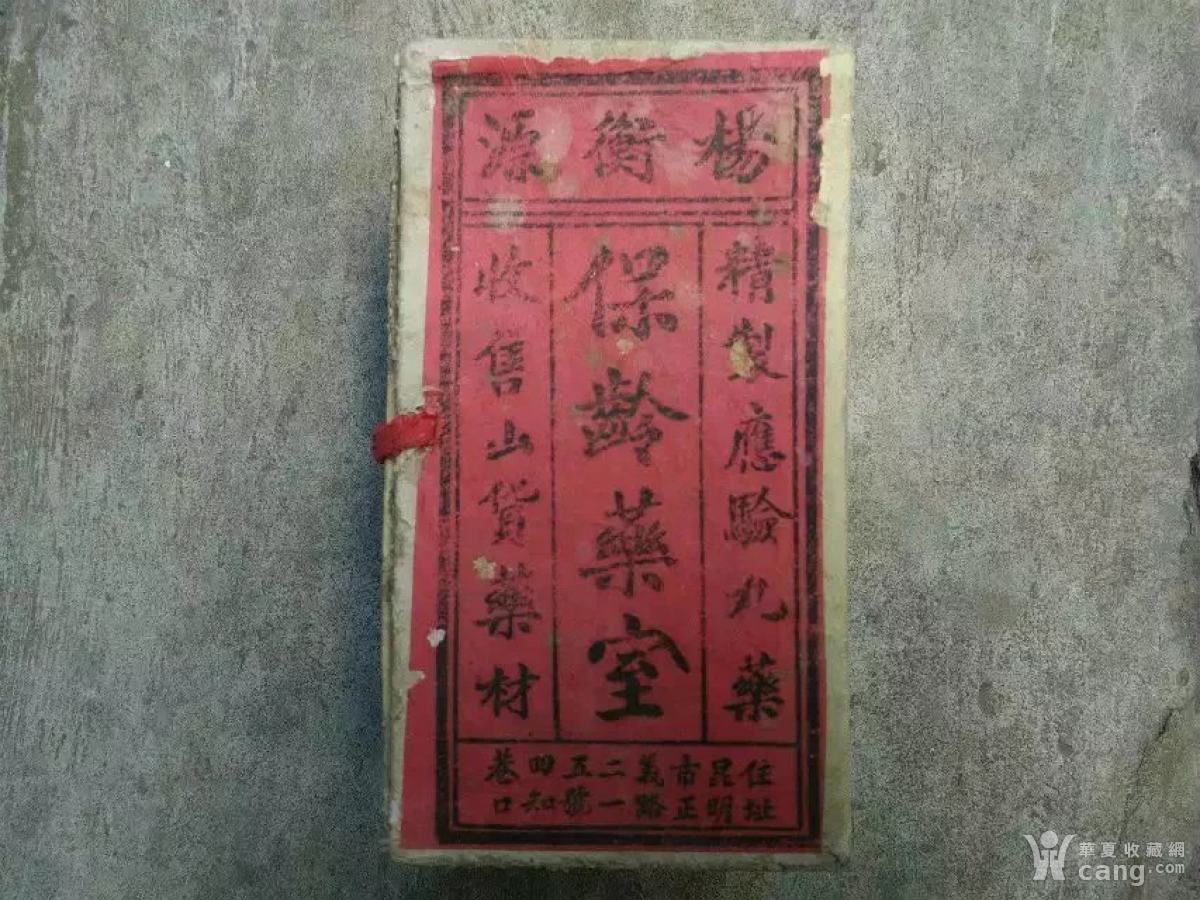 楊衡源
精製應驗丸藥
保齡藥室
收售山貨藥材
住址昆明市正義路二一五號四知巷口
華夏收藏網
cang.com